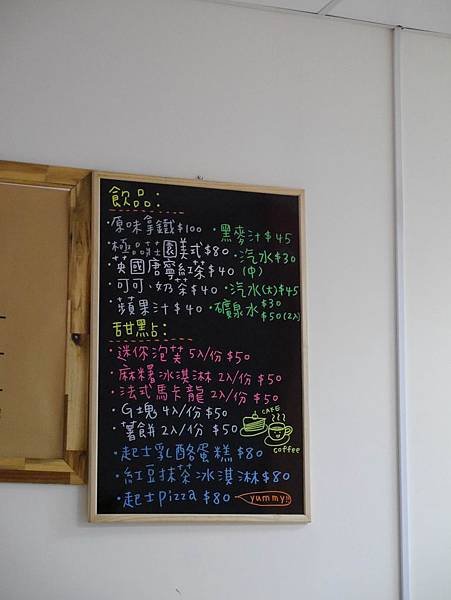 飲品:
·原味拿鐵$100 ·黑麥汁$45
·極品莊園美式$80 ·汽水$30(中)
·英國唐寧紅茶$40
·可可、奶茶$40 ·汽水(大)$45
·蘋果汁$40 ·礦泉水$30
$50(2入)
甜點:
·迷你泡芙5入/份$50
·麻糬冰淇淋2入/份$50
·法式馬卡龍2入/份$50
·G塊4入/份$50
·薯餅2入/份 $50
CAKE
coffee
·起士乳酪蛋糕$80
·紅豆抹茶冰淇淋$80
·起士pizza $80 yummy!!